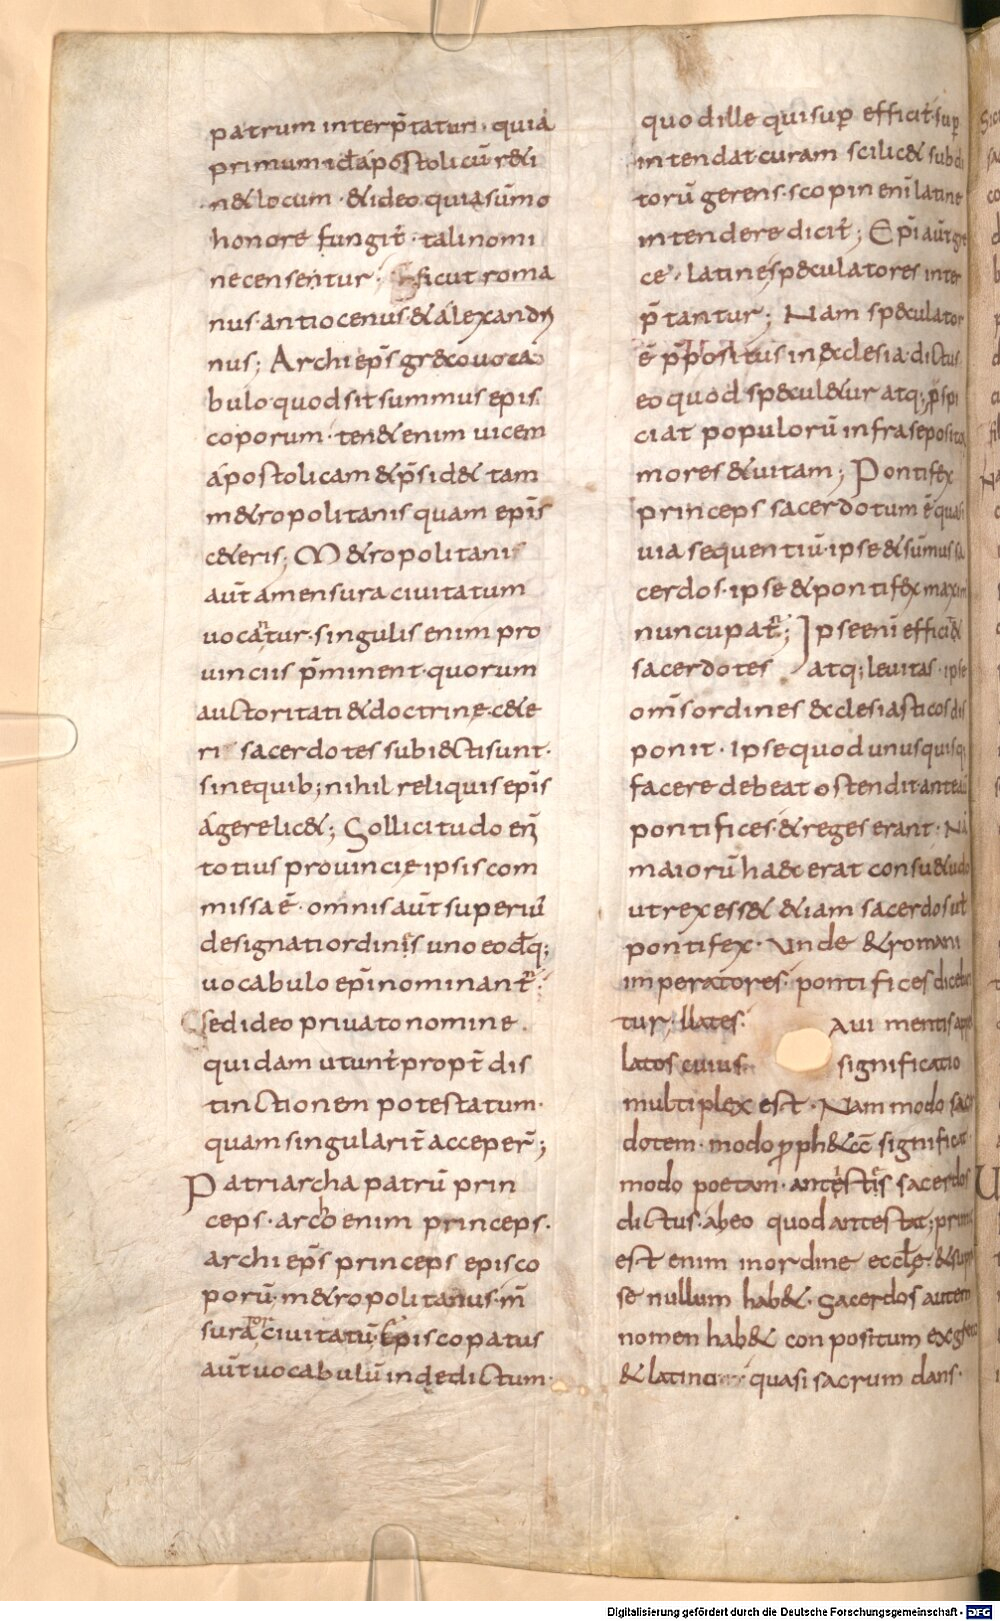 patrum interp̄tatur· quia
primum id÷apostolicū r&i
n& locum ·&ideo quiasūmo
honore fungit̄· talinomi
necensentur· Sicut roma
nus·antiocenus·&alexandri
nus; Archiep̄s grecouoca
bulo·quodsitsummus epis
coporum· ten& enim uicem
apostolicam &p̄sid& tam
m&ropolitanis quam ep̄is
c&eris; M&ropolitanis
aūt amensura ciuitatum
uocantur·singulis enim pro
uinciis p̄minent·quorum
auctoritati &doctrinę·c&e
ri sacerdotes subiecti sunt·
sinequib; nihil reliquis ep̄is
agerelic&; Sollicitudo eni
totius prouincię ipsis com
missa ē· omnis aūt superiu
designati ordinis uno eodq;
uocabulo ep̄i nominant̄·
Sed ideo priuato nomine
quidam utunt̄ propt̄ dis
tinctionem potestatum·
quam singularit̄ acceper̄;
Patriarcha patrū prin
ceps·archo enim princeps·
archiep̄s princeps episco
porū·m&ropolitanus·m̄
sura ciuitatū· Episcopatus
aūt uocabulū inde dictum·
quod ille qui sup̱ efficit̄·sup̱
intendat·curam scilic& subdi
torū gerens·scopin eni latine
intendere dicit̄; Ep̄i aūt gre
ce· latine speculatores inter
p̄tantur; Nam speculator
ē p̄positus in ecclesia·dictus
eo quod specul&ur atq; p̱spi
ciat populorū infra se posito
mores &uitam; Pontifex
princeps sacerdotum ē quasi
uia sequentiū·ipse &sūmus sa
cerdos·ipse &pontifex maxim
nuncupat̄; Ipse eni effic&
sacerdotes atq; leuitas· ipse
om̄s ordines ecclesiasticos dis
ponit· ipse quod unusquisq
facere debeat ostendit·ante aū
pontifices·&reges erant· Nā
maiorū haec erat consu&udo
ut rex ess& &iam sacerdos ut
pontifex· Unde &romani
imperatores· pontifices diceban
tur; Uates· A ui mentis app
latos cuius significatio
multiplex est· Nam modo sac
dotem· modo proph&ā significat·
modo poetam· antestis sacerdos
dictus·abeo quod antestat; primus
est enim in ordine eccle· &sup
se nullum hab&· Sacerdos autem
nomen hab& conpositum ex greco
&latino· quasi sacrum dans·
Digitalisierung gefördert durch die Deutsche Forschungsgemeinschaft - DFG